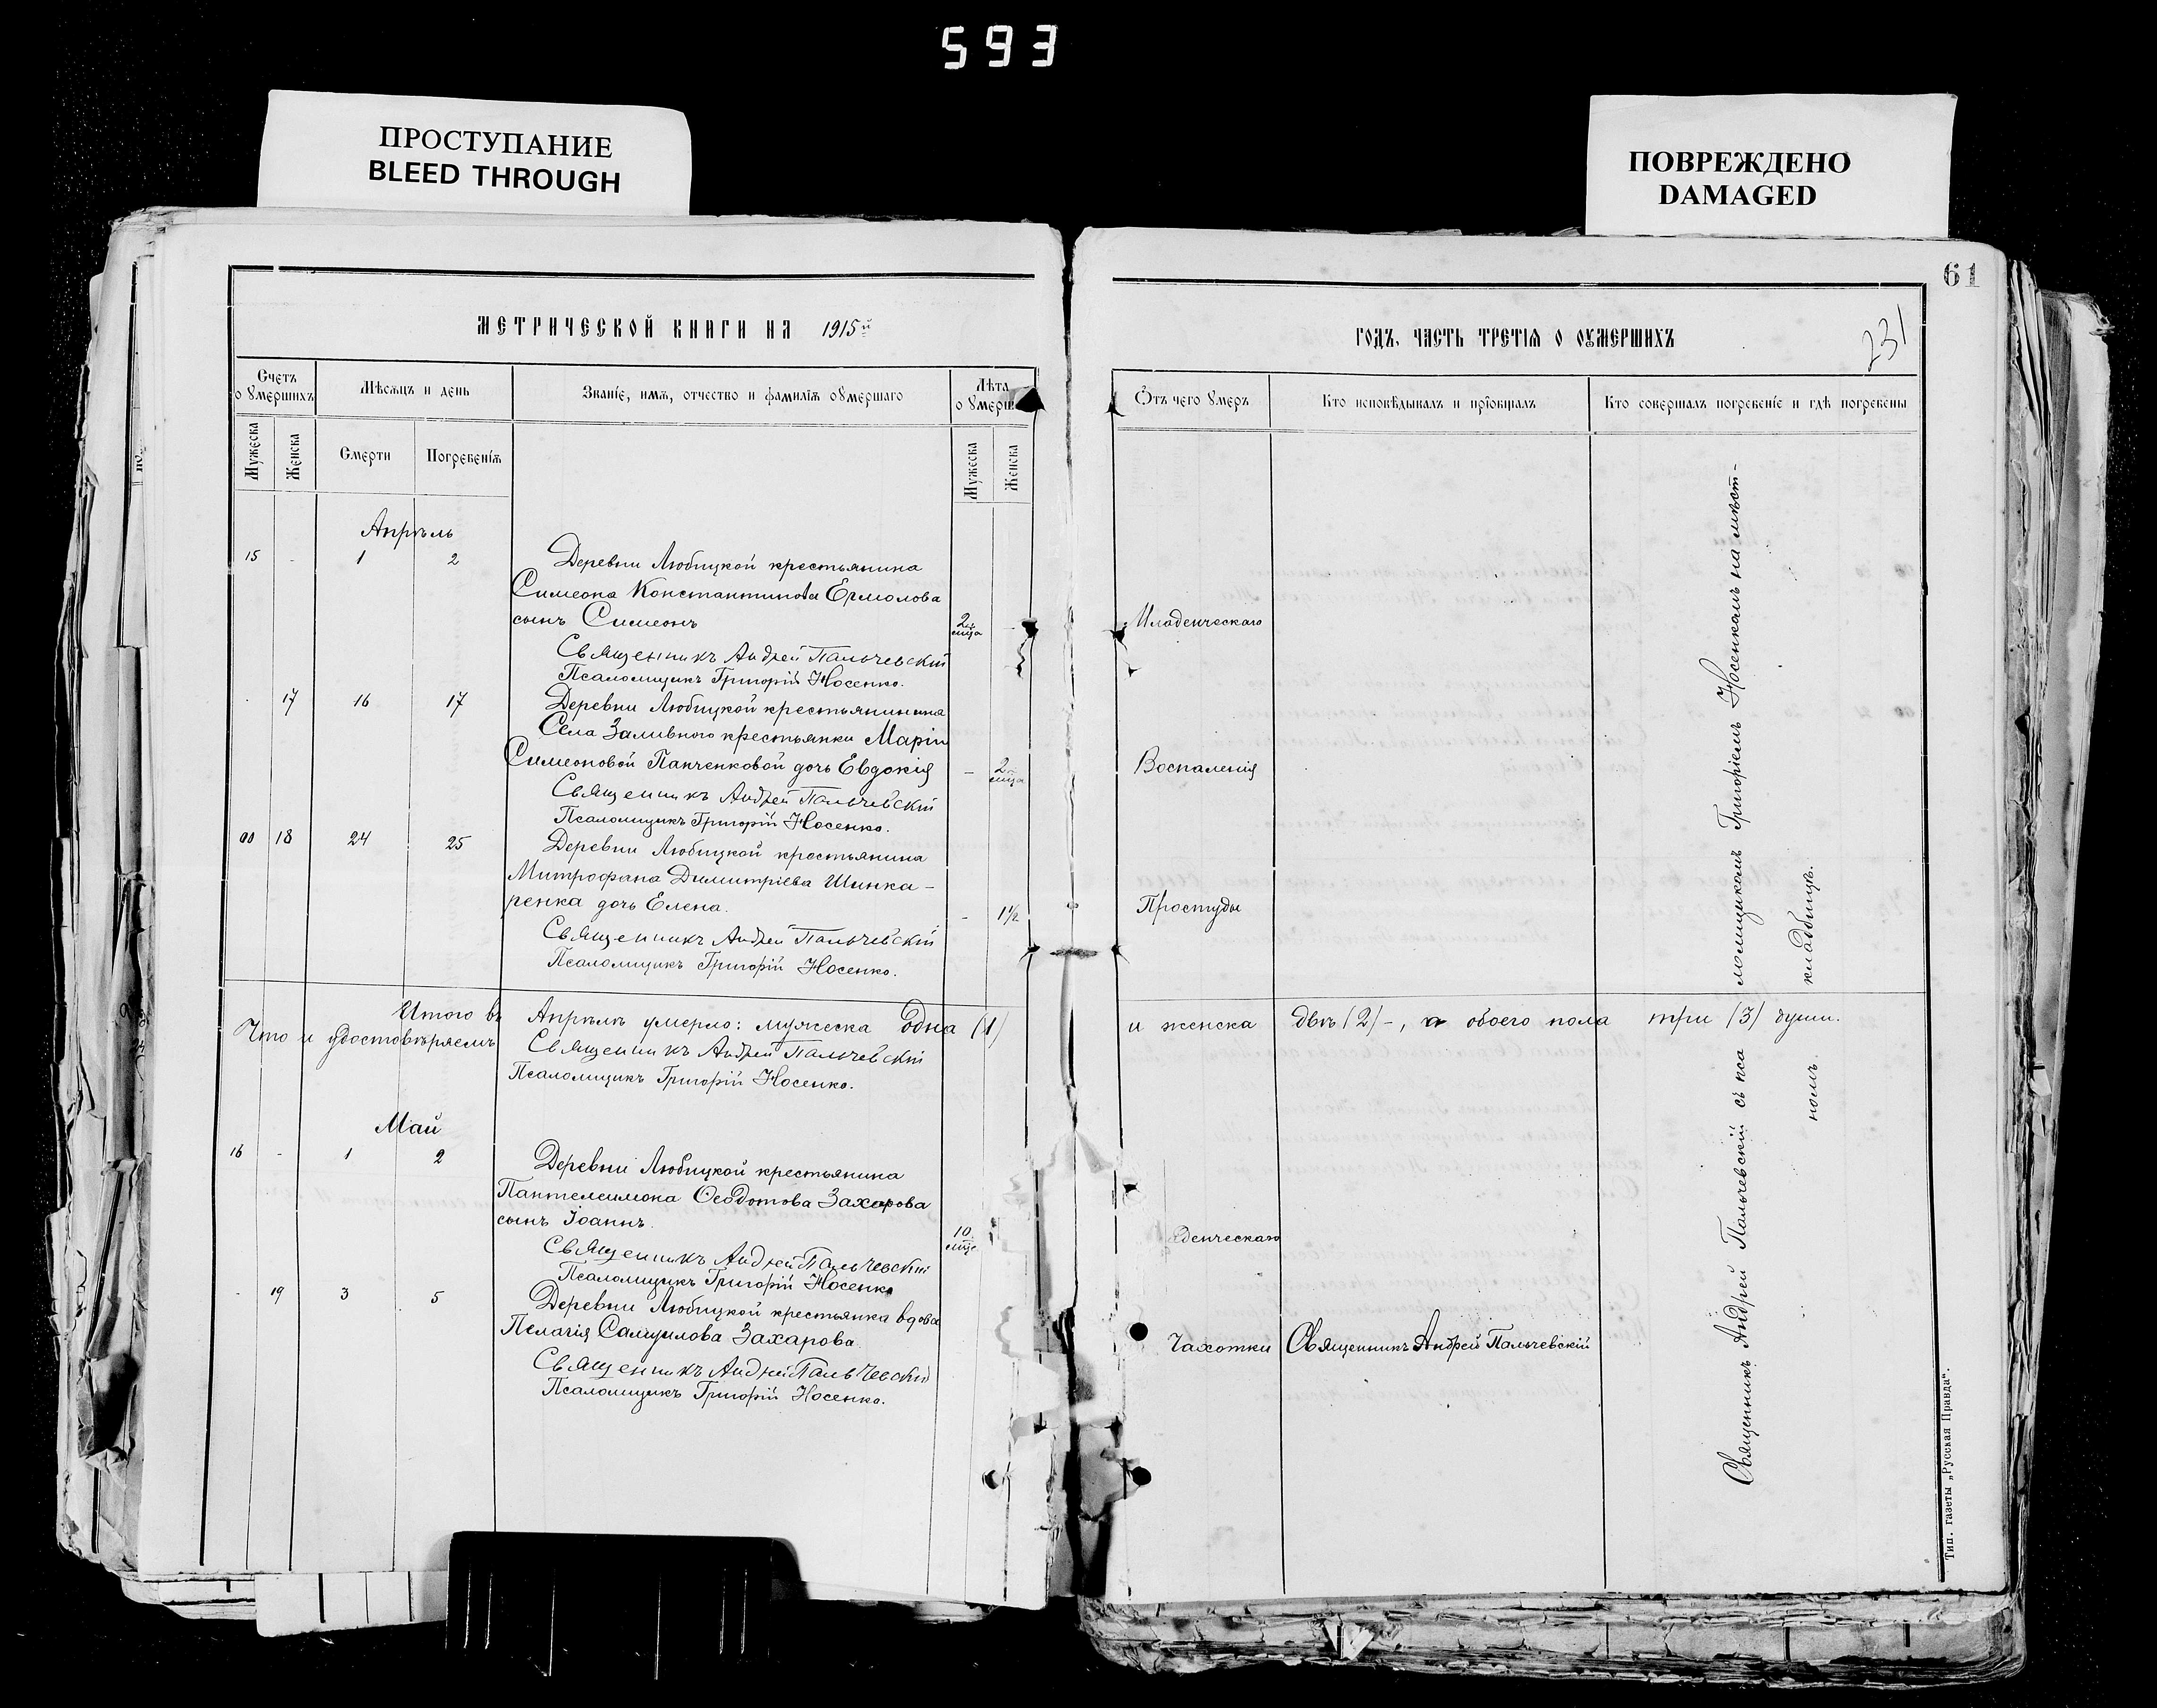 593
ПРОСТУПАНИЕ
BLEED THROUGH
ПОВРЕЖДЕНО
DAMAGED
61
231
МЕТРИЧЕСКОЙ КНИГИ НА 1915й
ГОДЪ, ЧАСТЬ ТРЕТІѦ О ОУМЕРШИХЪ
Счетъ о умершихъ
Мѣсѧцъ и день
Званіе, имѧ, отчество и фамиліѧ оумершаго
Лѣта о умерш
Отъ чего умеръ
Кто исповѣдывалъ и пріобщалъ
Кто совершалъ погребеніе и гдѣ погребены
Мужеска
Женска
Смерти
Погребеніѧ
Мужеска
Женска
Апрѣль
15 - 1 2 Деревни Любицкой крестьянина
Симеона Константинова Ермолова
сынъ Симеонъ 2 мца Младенческаго
Священникъ Андрей Пальчевскій
Псаломщикъ Григорій Носенко.
- 17 16 17 Деревни Любицкой крестьянина
Села Заливного крестьянки Маріи
Симеоновой Панченковой дочь Евдокія - 2 мца Воспаленія
Священникъ Андрей Пальчевскій
Псаломщикъ Григорій Носенко.
00 18 24 25 Деревни Любицкой крестьянина
Митрофана Димитріева Шинка-
ренка дочь Елена. - 1½ Простуды
Священникъ Андрей Пальчевскій
Псаломщикъ Григорій Носенко.
Итого въ Апрѣлѣ умерло: мужеска одна (1) и женска двѣ (2)-, а обоего пола три (3) души.
Что и удостовѣряемъ
Священникъ Андрей Пальчевскій
Псаломщикъ Григорій Носенко.
Май
16 - 1 2 Деревни Любицкой крестьянина
Пантелеимона Ѳеодотова Захарова
сынъ Іоаннъ. 10 мце денческаго
Священникъ Андрей Пальчевскій
Псаломщикъ Григорій Носенко
- 19 3 5 Деревни Любицкой крестьянка вдова
Пелагія Самуилова Захарова. Чахотки Священникъ Андрей Пальчевскій
Священникъ Андрей Пальчевскій
Псаломщикъ Григорій Носенко.
Священникъ Андрей Пальчевскій съ псаломщикомъ Григоріемъ Носенкомъ на мѣст-
номъ кладбищѣ.
Тип. газеты „Русская Правда".